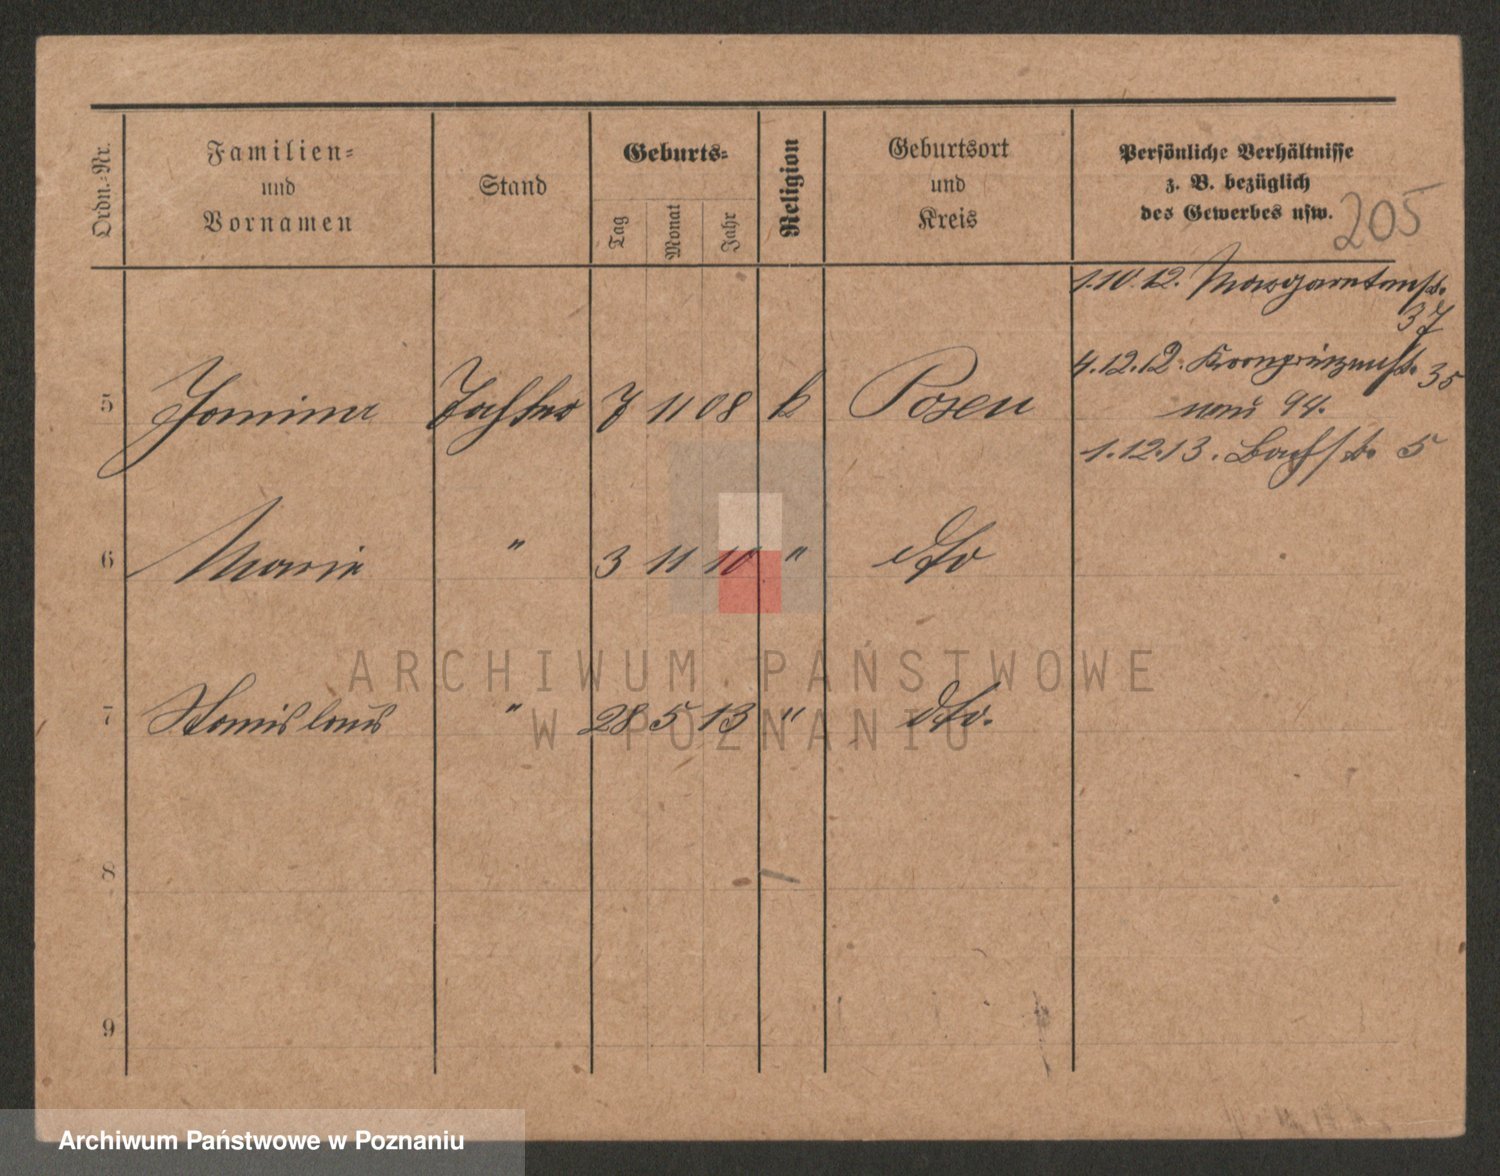 Ordn.-Nr.
Familien-
und
Vornamen
Stand
Geburts-
Tag
Monat
Jahr
Religion
Geburtsort
und
Kreis
Persönliche Verhältnisse
z. B. bezüglich
des Gewerbes usw.
205
1.10.12. Margaretenst.
37
4.12.12. Kronprinzenst. 35
94.
1.12.13. Bachst. 5
5 Janina Tochter 7 11 08 k Posen
6 Marie " 3 11 10 " dto
7 Stanislaus " 28 5 13 " dto.
8
9
ARCHIWUM PAŃSTWOWE
W POZNANIU
Archiwum Państwowe w Poznaniu